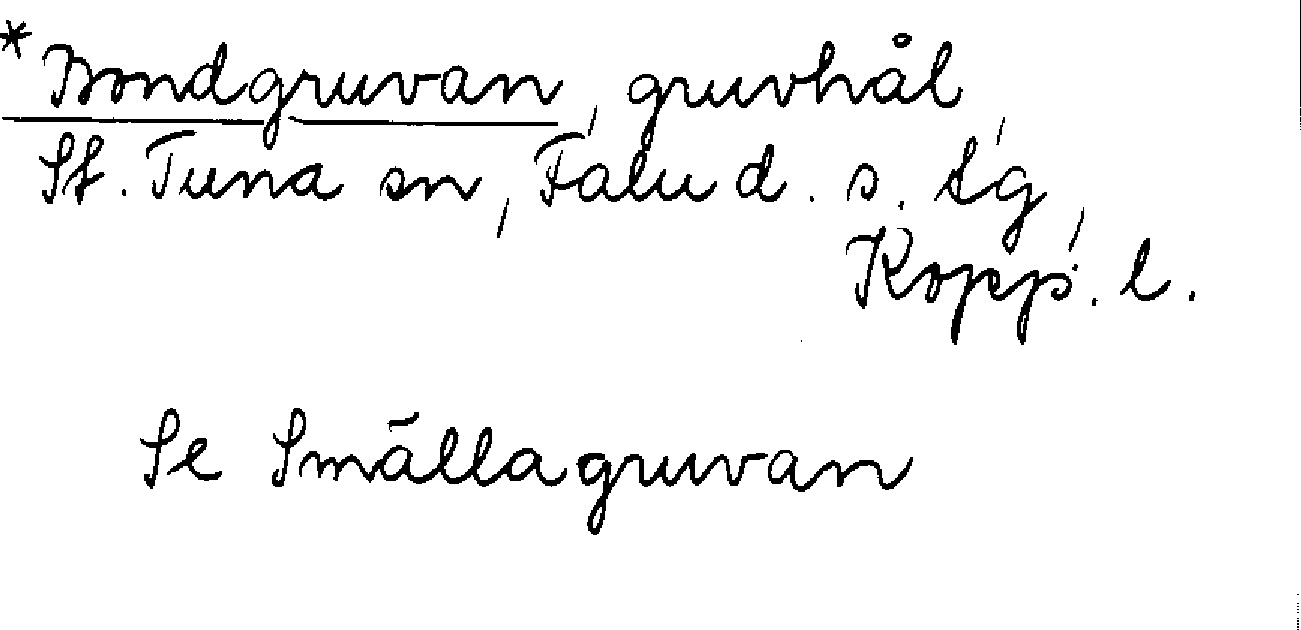 *Bondgruvan, gruvhål,
St. Tuna sn, Falu d. s. tg,
Kopp. l.
Se Smällagruvan